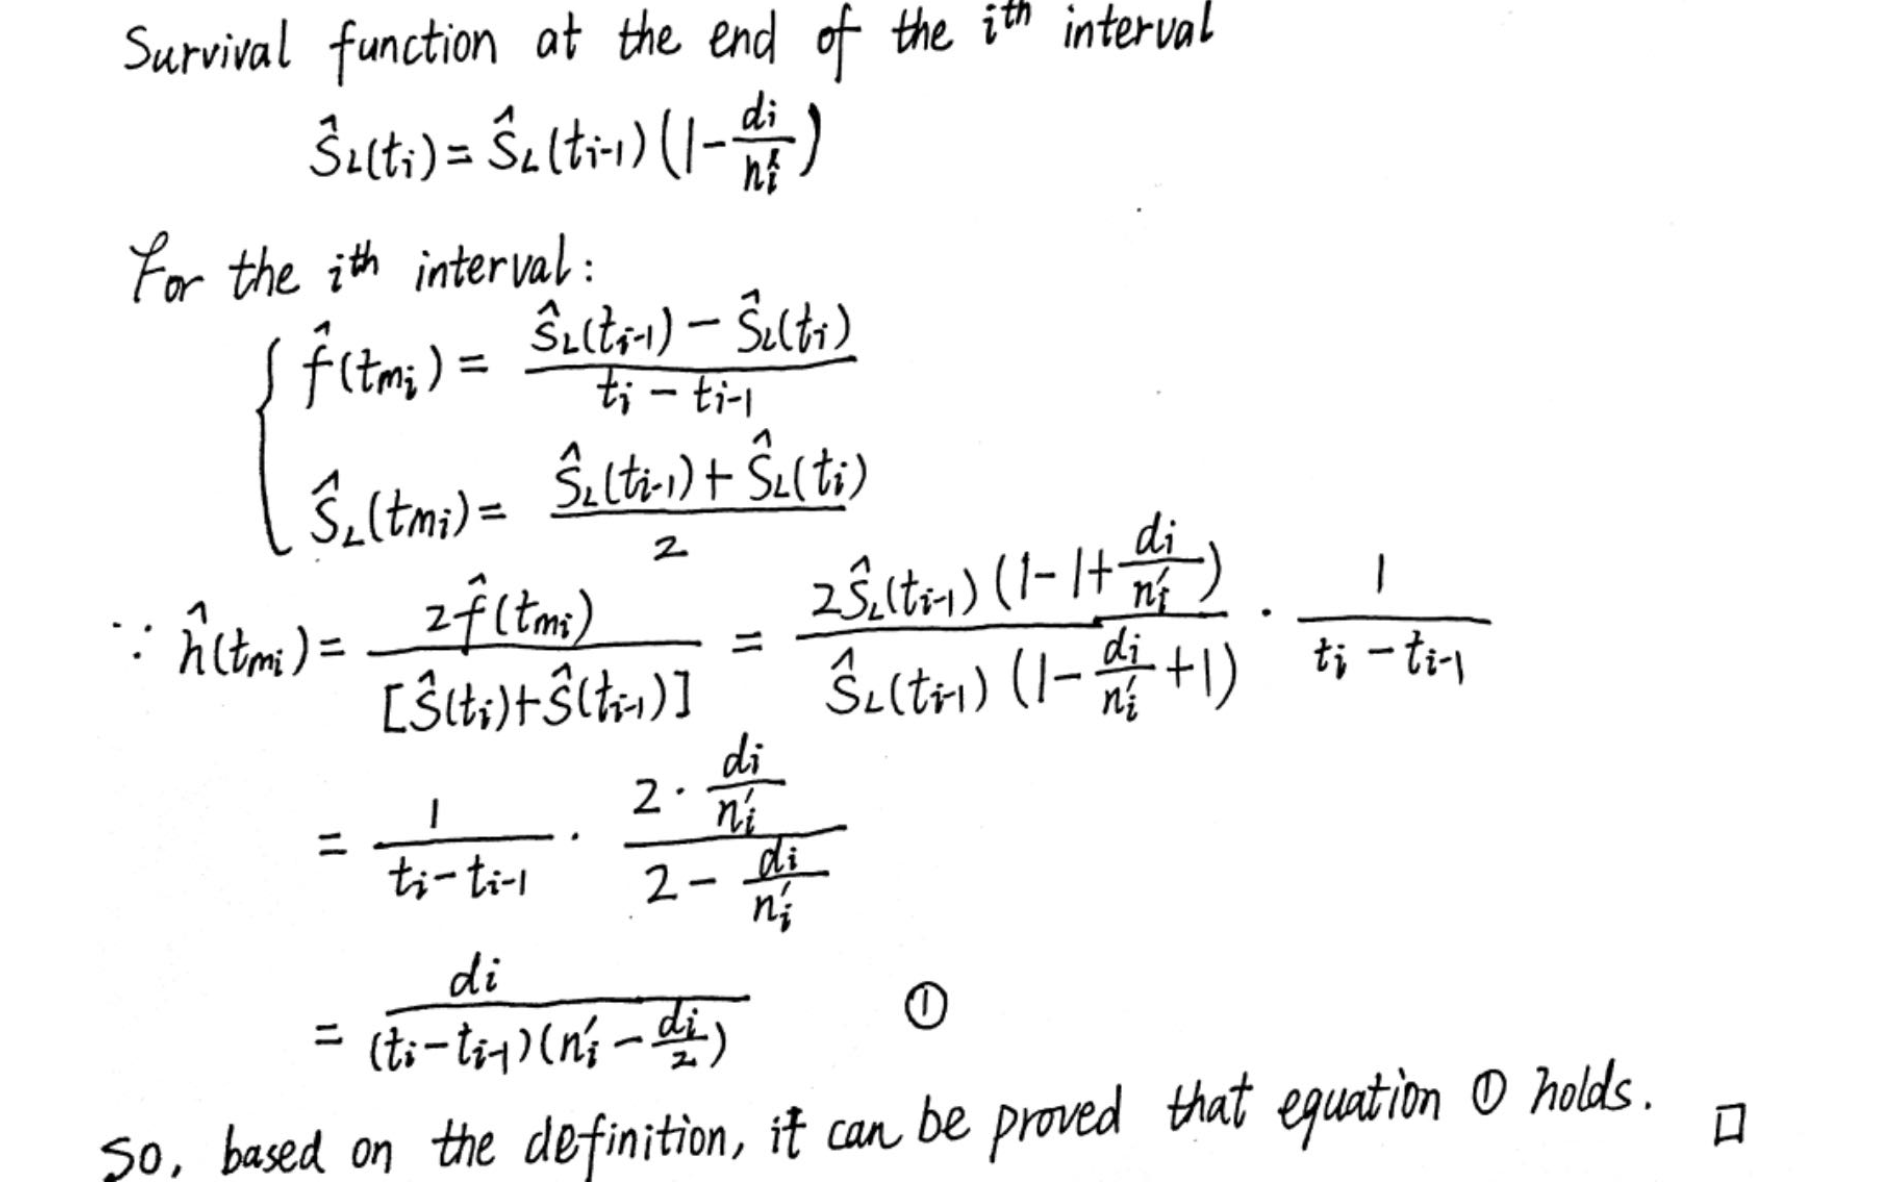 Survival function at the end of the i^th interval
Ŝ_L(t_i) = Ŝ_L(t_{i-1}) (1 - d_i/n_i')
For the i^th interval:
{ f̂(t_{mi}) = (Ŝ_L(t_{i-1}) - Ŝ_L(t_i)) / (t_i - t_{i-1})
Ŝ_L(t_{mi}) = (Ŝ_L(t_{i-1}) + Ŝ_L(t_i)) / 2
∵ ĥ(t_{mi}) = 2f̂(t_{mi}) / [Ŝ(t_i)+Ŝ(t_{i-1})] = 2Ŝ_L(t_{i-1}) (1-1+d_i/n_i') / Ŝ_L(t_{i-1}) (1-d_i/n_i'+1) · 1/(t_i - t_{i-1})
= 1/(t_i - t_{i-1}) · (2·d_i/n_i') / (2 - d_i/n_i')
= d_i / (t_i - t_{i-1})(n_i' - d_i/2) ①
So, based on the definition, it can be proved that equation ① holds. □